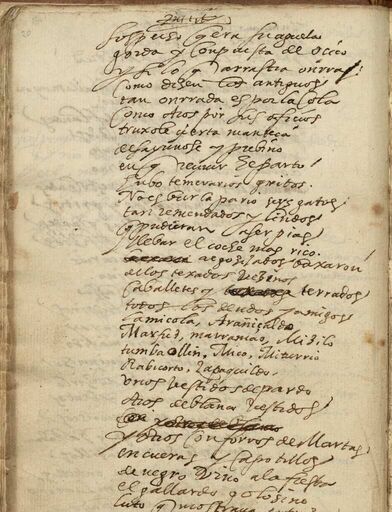 suspenso q era su aguela
gorda y compuesta de ocico
y si lo q arrastra onrra
como dizen los antiguos
tan onrrada es por la cola
como otros por sus oficios
truxole çierta manteca
desayunose y preuino
en q reciuir el parto
hubo temerarios gritos.
No es burla pario seys gatos
tan remendados y lindos
q pudieran a ser pias
llebar el coche mas rico.
regozijados baxaron
de los texados vezinos
caballetes y terrados
todos los deudos y amigos
Lamicola, Arañizaldo
Marfuz, marramao, Mizilo
tumba ollin, Mico, Miturrio
Rabicorto, Zapaquildo.
vnos vestidos de pardo
otros de blanco vestidos
y otros con forros de Martas
en cueras y capotillos
de negro vino a la fiesta
el gallardo golosino
luto q mostraua